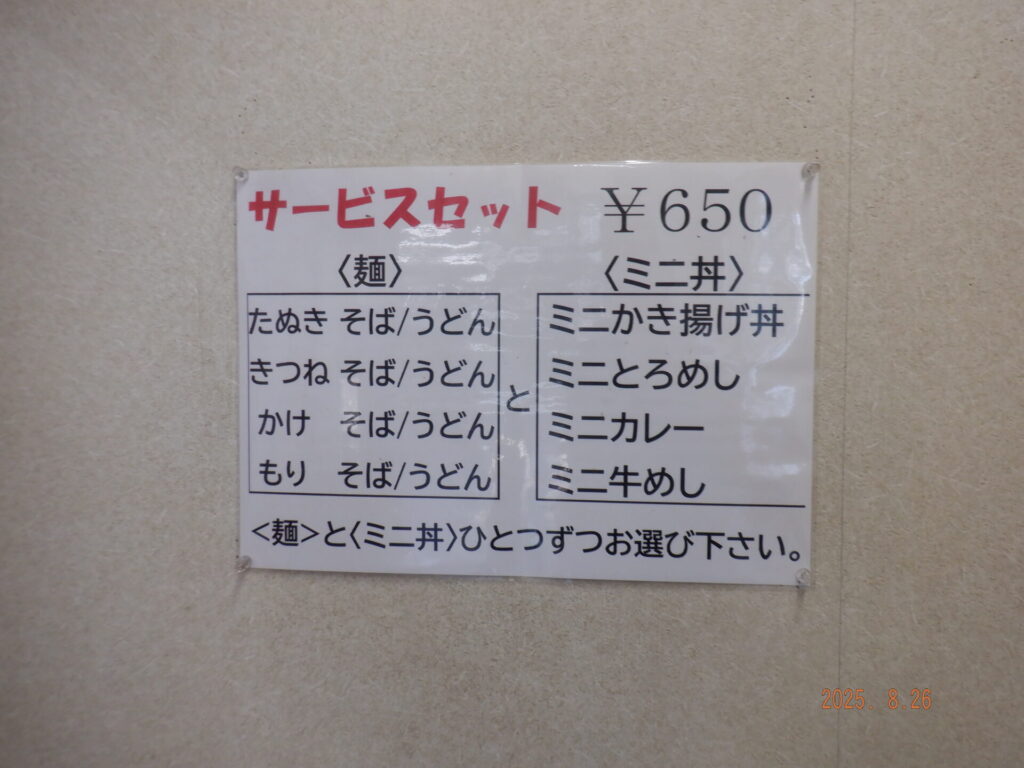 サービスセット ￥650
〈麺〉 〈ミニ丼〉
たぬき そば/うどん ミニかき揚げ丼
きつね そば/うどん ミニとろめし
と
かけ そば/うどん ミニカレー
もり そば/うどん ミニ牛めし
<麺>と〈ミニ丼〉ひとつずつお選び下さい。
2025. 8.26